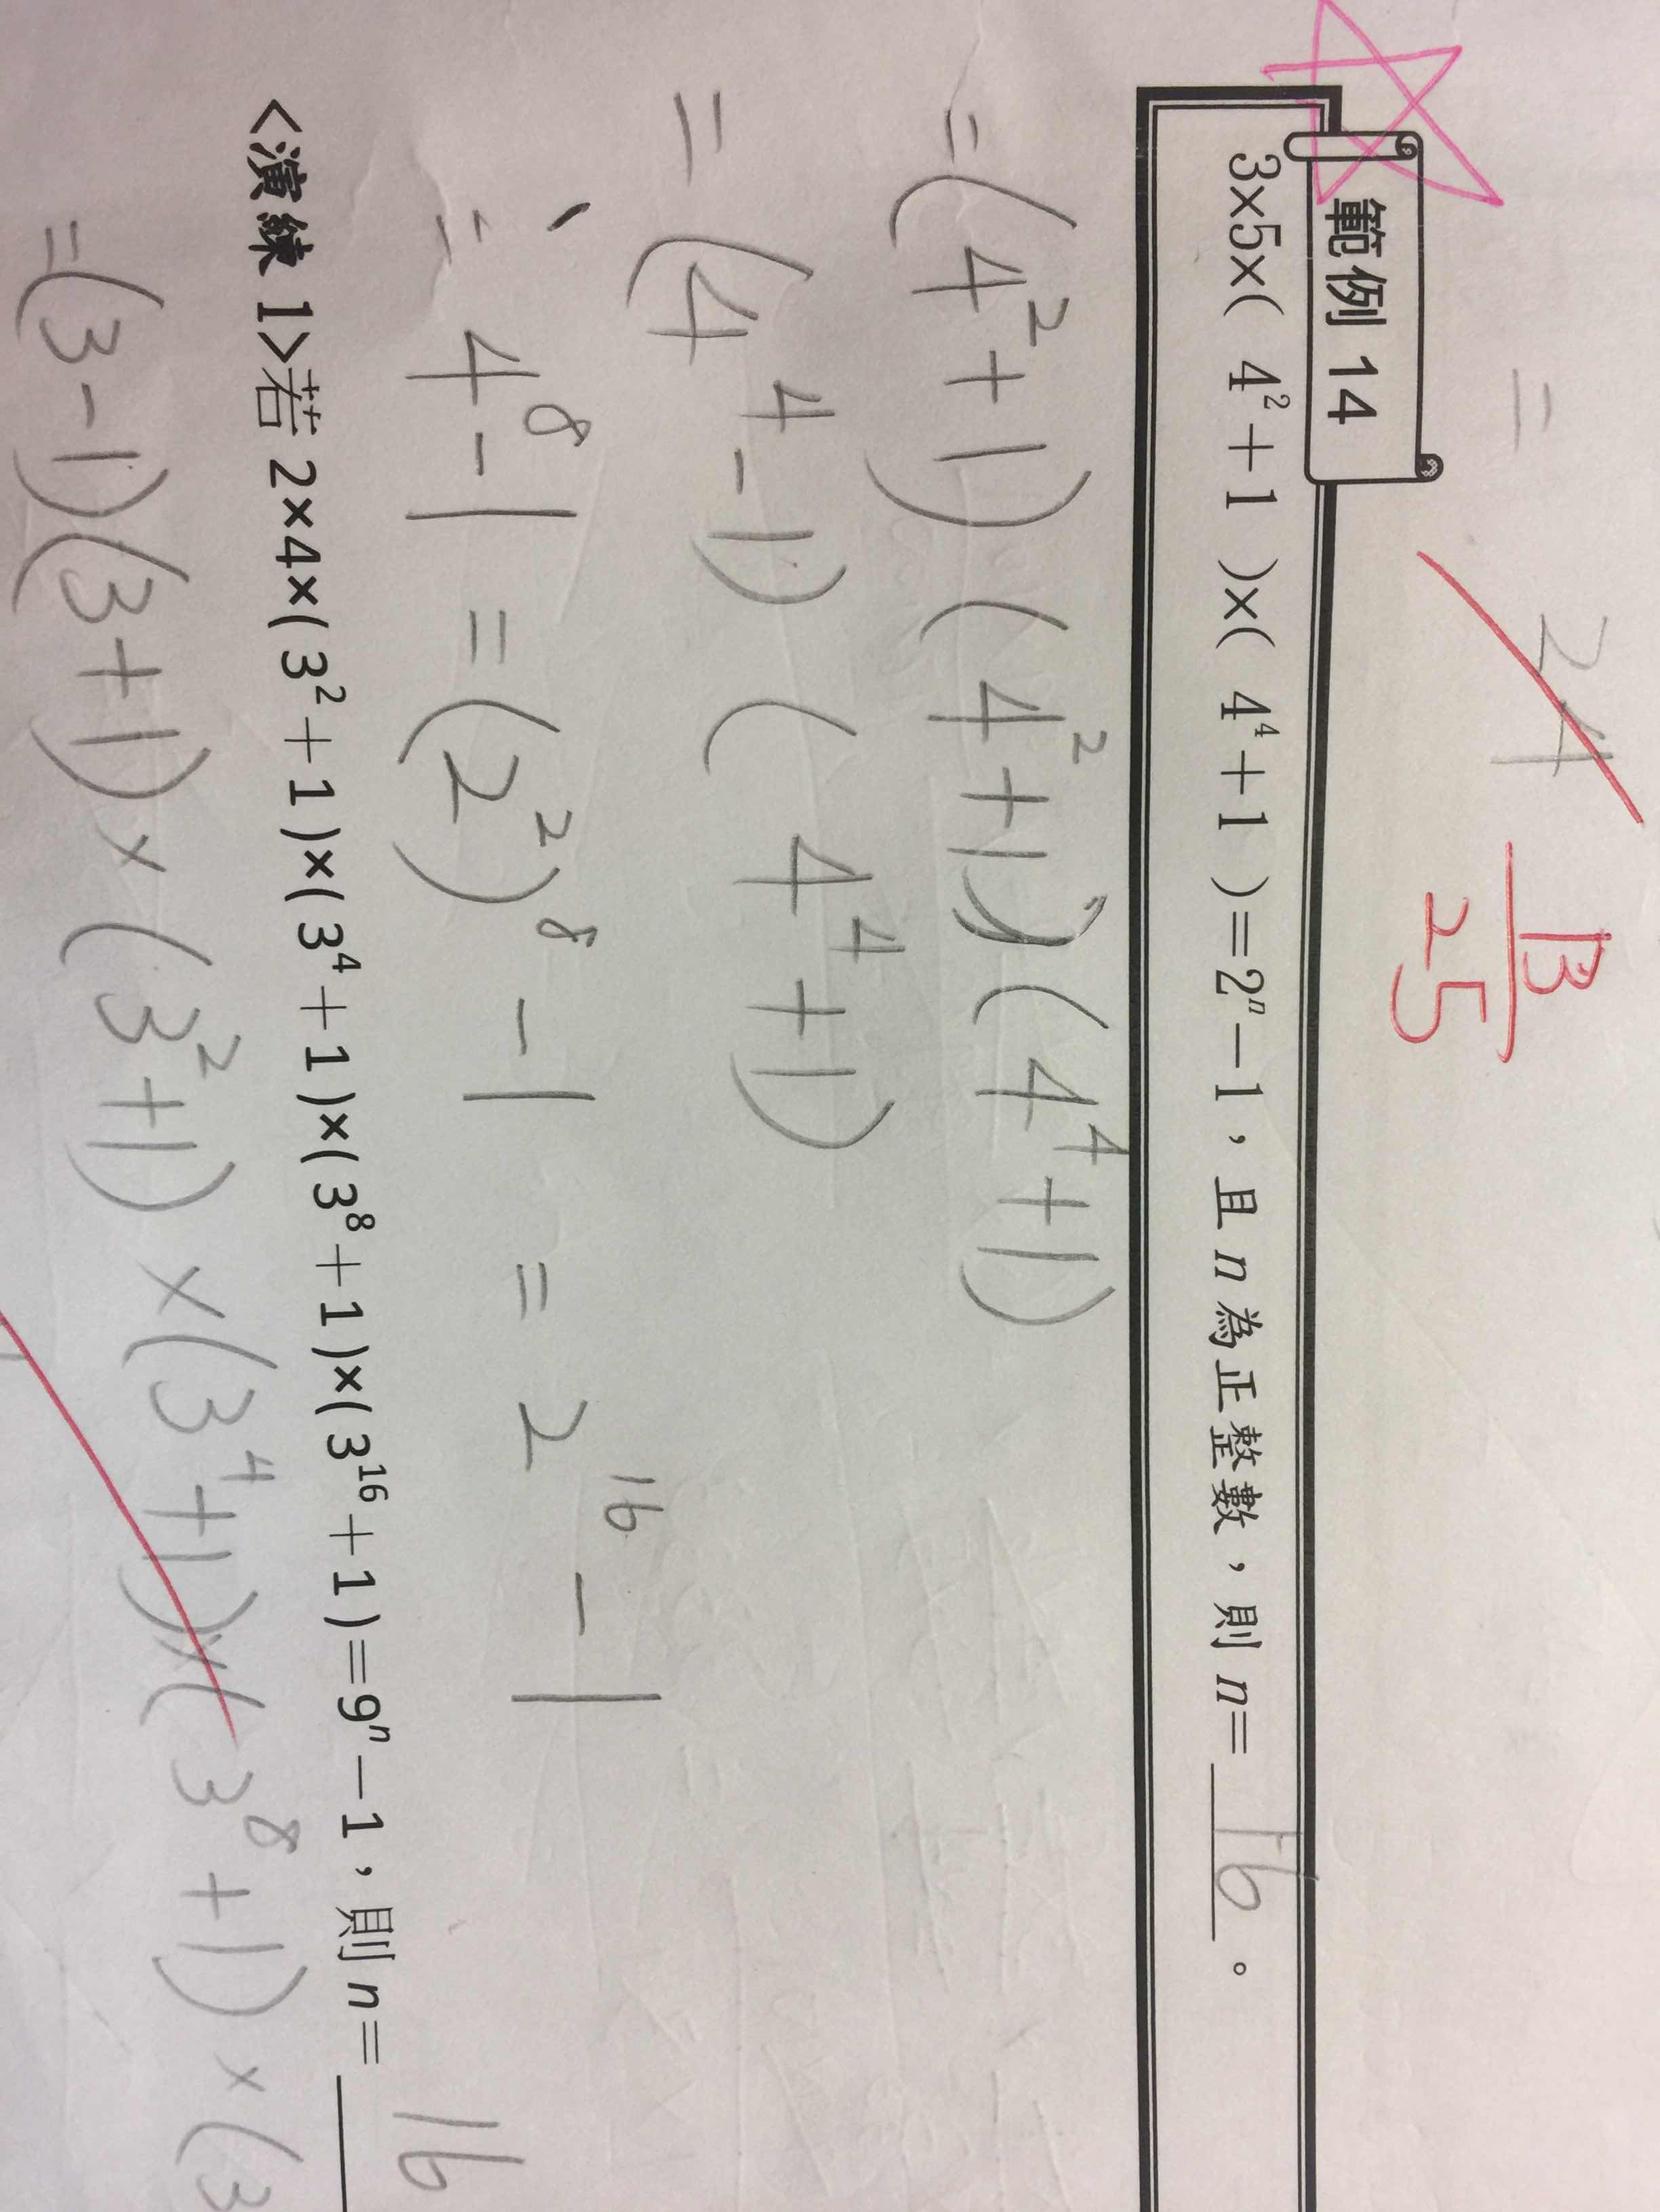 = 24 13/25
範例 14
3×5×( 4²+1 )×( 4⁴+1 )=2ⁿ−1，且 n 為正整數，則 n= 16 。
=(4²+1)(4²+1)(4⁴+1)
=(4⁴-1)(4⁴+1)
= 4⁸-1 =(2²)⁸-1 = 2¹⁶-1
<演練 1>若 2×4×(3²+1)×(3⁴+1)×(3⁸+1)×(3¹⁶+1)=9ⁿ−1，則 n= 16
=(3-1)(3+1)×(3²+1)×(3⁴+1)×(3⁸+1)×(3